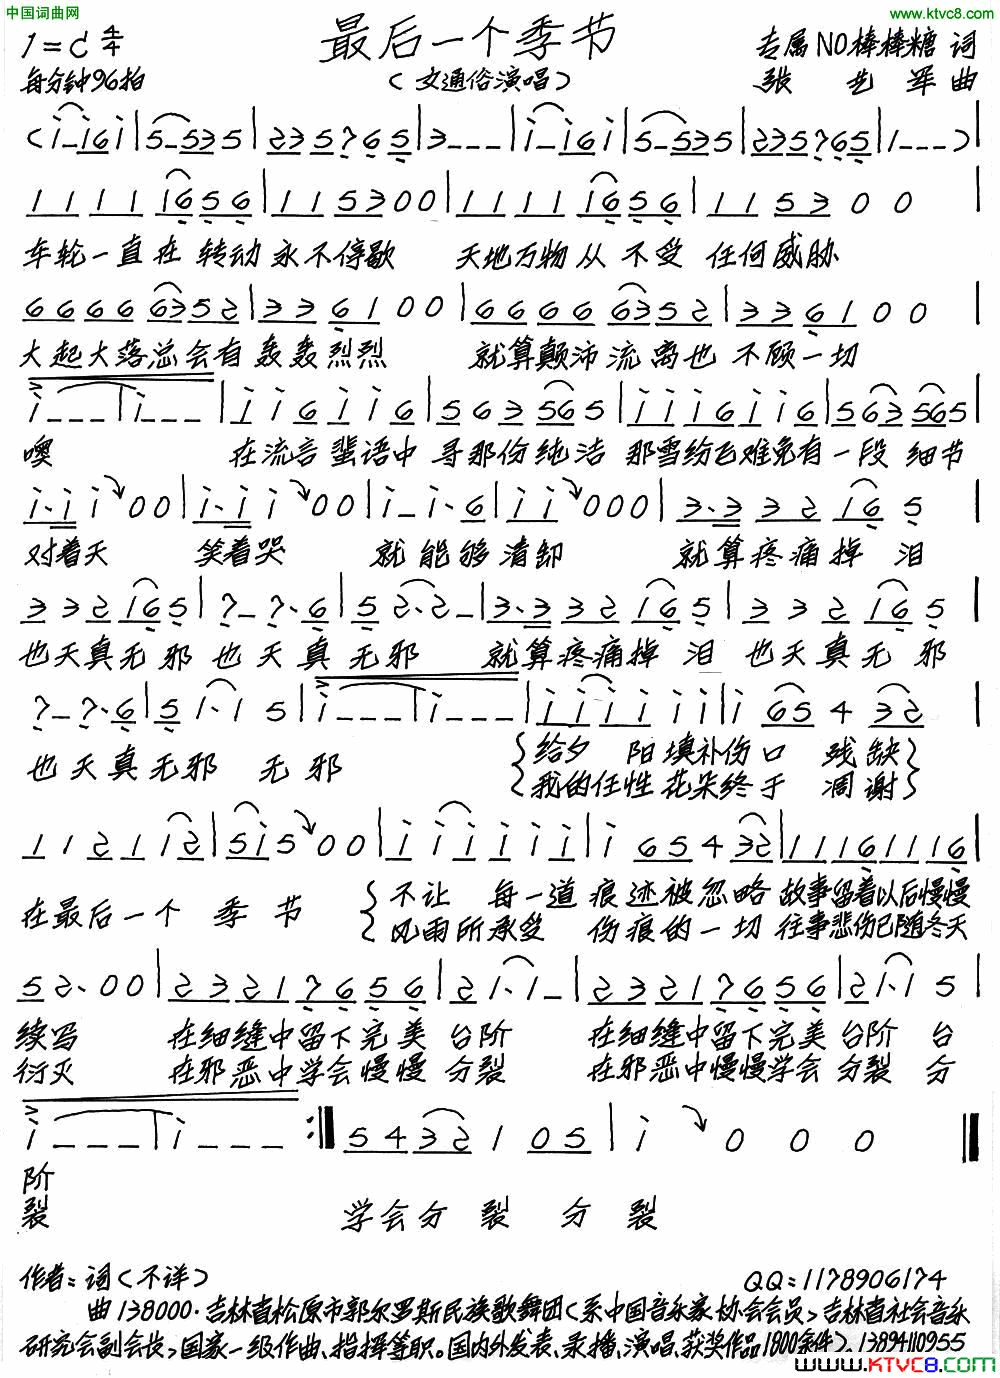 中国词曲网 www.ktvc8.com
最后一个季节
1=C 4/4 专属NO棒棒糖 词
每分钟96拍 (文通俗演唱) 张艺军 曲
(i-i6i|5-535|235765|3---|i-i6i|5-535|235765|1---)|
1111 1656|115300|1111 1656|1153 0 0|
车轮一直在 转动永不停歇 天地万物从 不受 任何威胁
6666 6352|336100|6666 6352|3361 0 0|
大起大落总会有 轰轰烈烈 就算颠沛流离也 不顾一切
i---|i---|ii6ii6|563565|iii6ii6|563565|
噢 在流言蜚语中 寻那份纯洁 那雪纷飞难免有一段 细节
i·ii00|i·ii00|i-i·6|ii000|3·332 16 5|
对着天 笑着哭 就能够清卸 就算疼痛掉 泪
332165|7-7·6|52·2-|3·332165|332 16 5|
也天真无邪 也天真无邪 就算疼痛掉 泪 也天真无邪
7-7·6|51·15|i---|i---|iiiiiii|i 65 4 32|
也天真无邪 无邪 给夕 阳填补伤口 残缺
我的任性花朵终于 凋谢
112112|5i500|iiiiii|i 65432|11161116|
在最后一个 季节 不让 每一道痕迹被忽略 故事留着以后慢慢
风雨所承受 伤痕的一切 往事悲伤已随冬天
52·00|23217656|21·1-|23217656|21·15|
续写 在细缝中留下完美 台阶 在细缝中留下完美台阶 台
衍灭 在邪恶中学会慢慢 分裂 在邪恶中慢慢学会分裂 分
i---|i---:‖5432105|i 0 0 0‖
阶
裂 学会分裂 分裂
作者:词(不详) QQ:1178906174
曲138000·吉林省松原市郭尔罗斯民族歌舞团(系中国音乐家协会会员,吉林省社会音乐
研究会副会长,国家一级作曲、指挥等职。国内外发表、录播、演唱、获奖作品1800余件)、13894110955
www.KTVC8.com